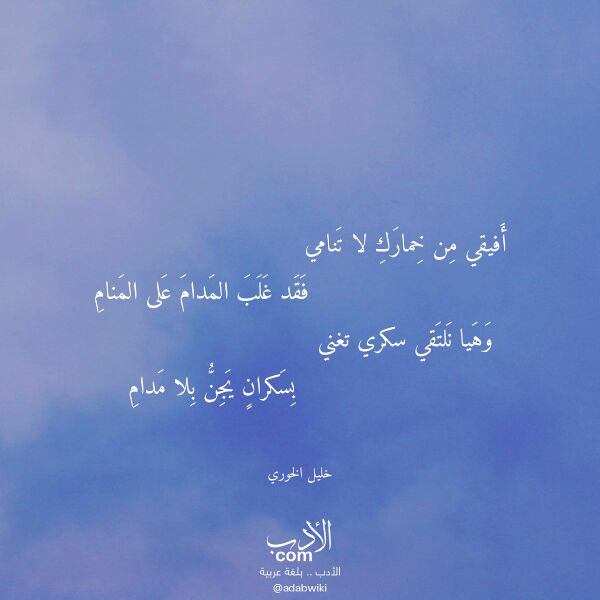 أَفيقي مِن خِمارَكِ لا تَنامي
فَقَد غَلَبَ المَدامَ عَلى المَنامِ
وَهَيا نَلتَقي سكري تغني
بِسَكرانٍ يَجِنُّ بِلا مَدامِ
خليل الخوري
الأدب
com
الأدب .. بلغة عربية
@adabwiki